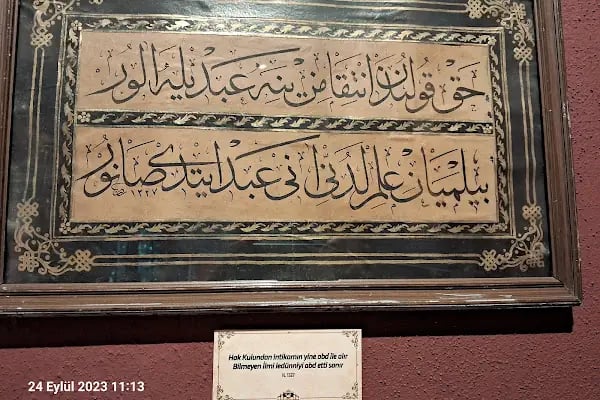 حق قولندن انتقامن ينه عبديله الور
بيلميان علم لدنى انى عبد ايتدى صانور
١٣٢٧
Hak Kulundan intikamın yine abd ile alır
Bilmeyen İlmi ledünniyi abd etti sanır
H. 1327
24 Eylül 2023 11:13